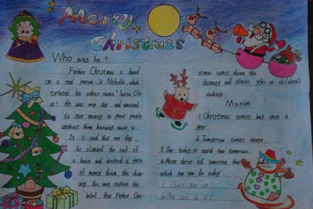 Merry
Christmas
Who was he?
Father Christmas is based
on a real person, St. Nicholas which
explains his other name 'Santa Cl
us'. He was very shy and wanted
to give money to poor people
without them knowing about it.
It is said that one day,
he climbed the roof of
a house and dropped a purse
of money down the chim
ney. This may explain the
belief that Father Chri
stmas comes down the
chimney and places gifts in children's
stockings.
Maxim
1. Christmas comes but once a
year.
2. Tomorrow comes never.
3. One today is worth two tomorrows.
4. Never defer till tomorrow that
which you can do today.